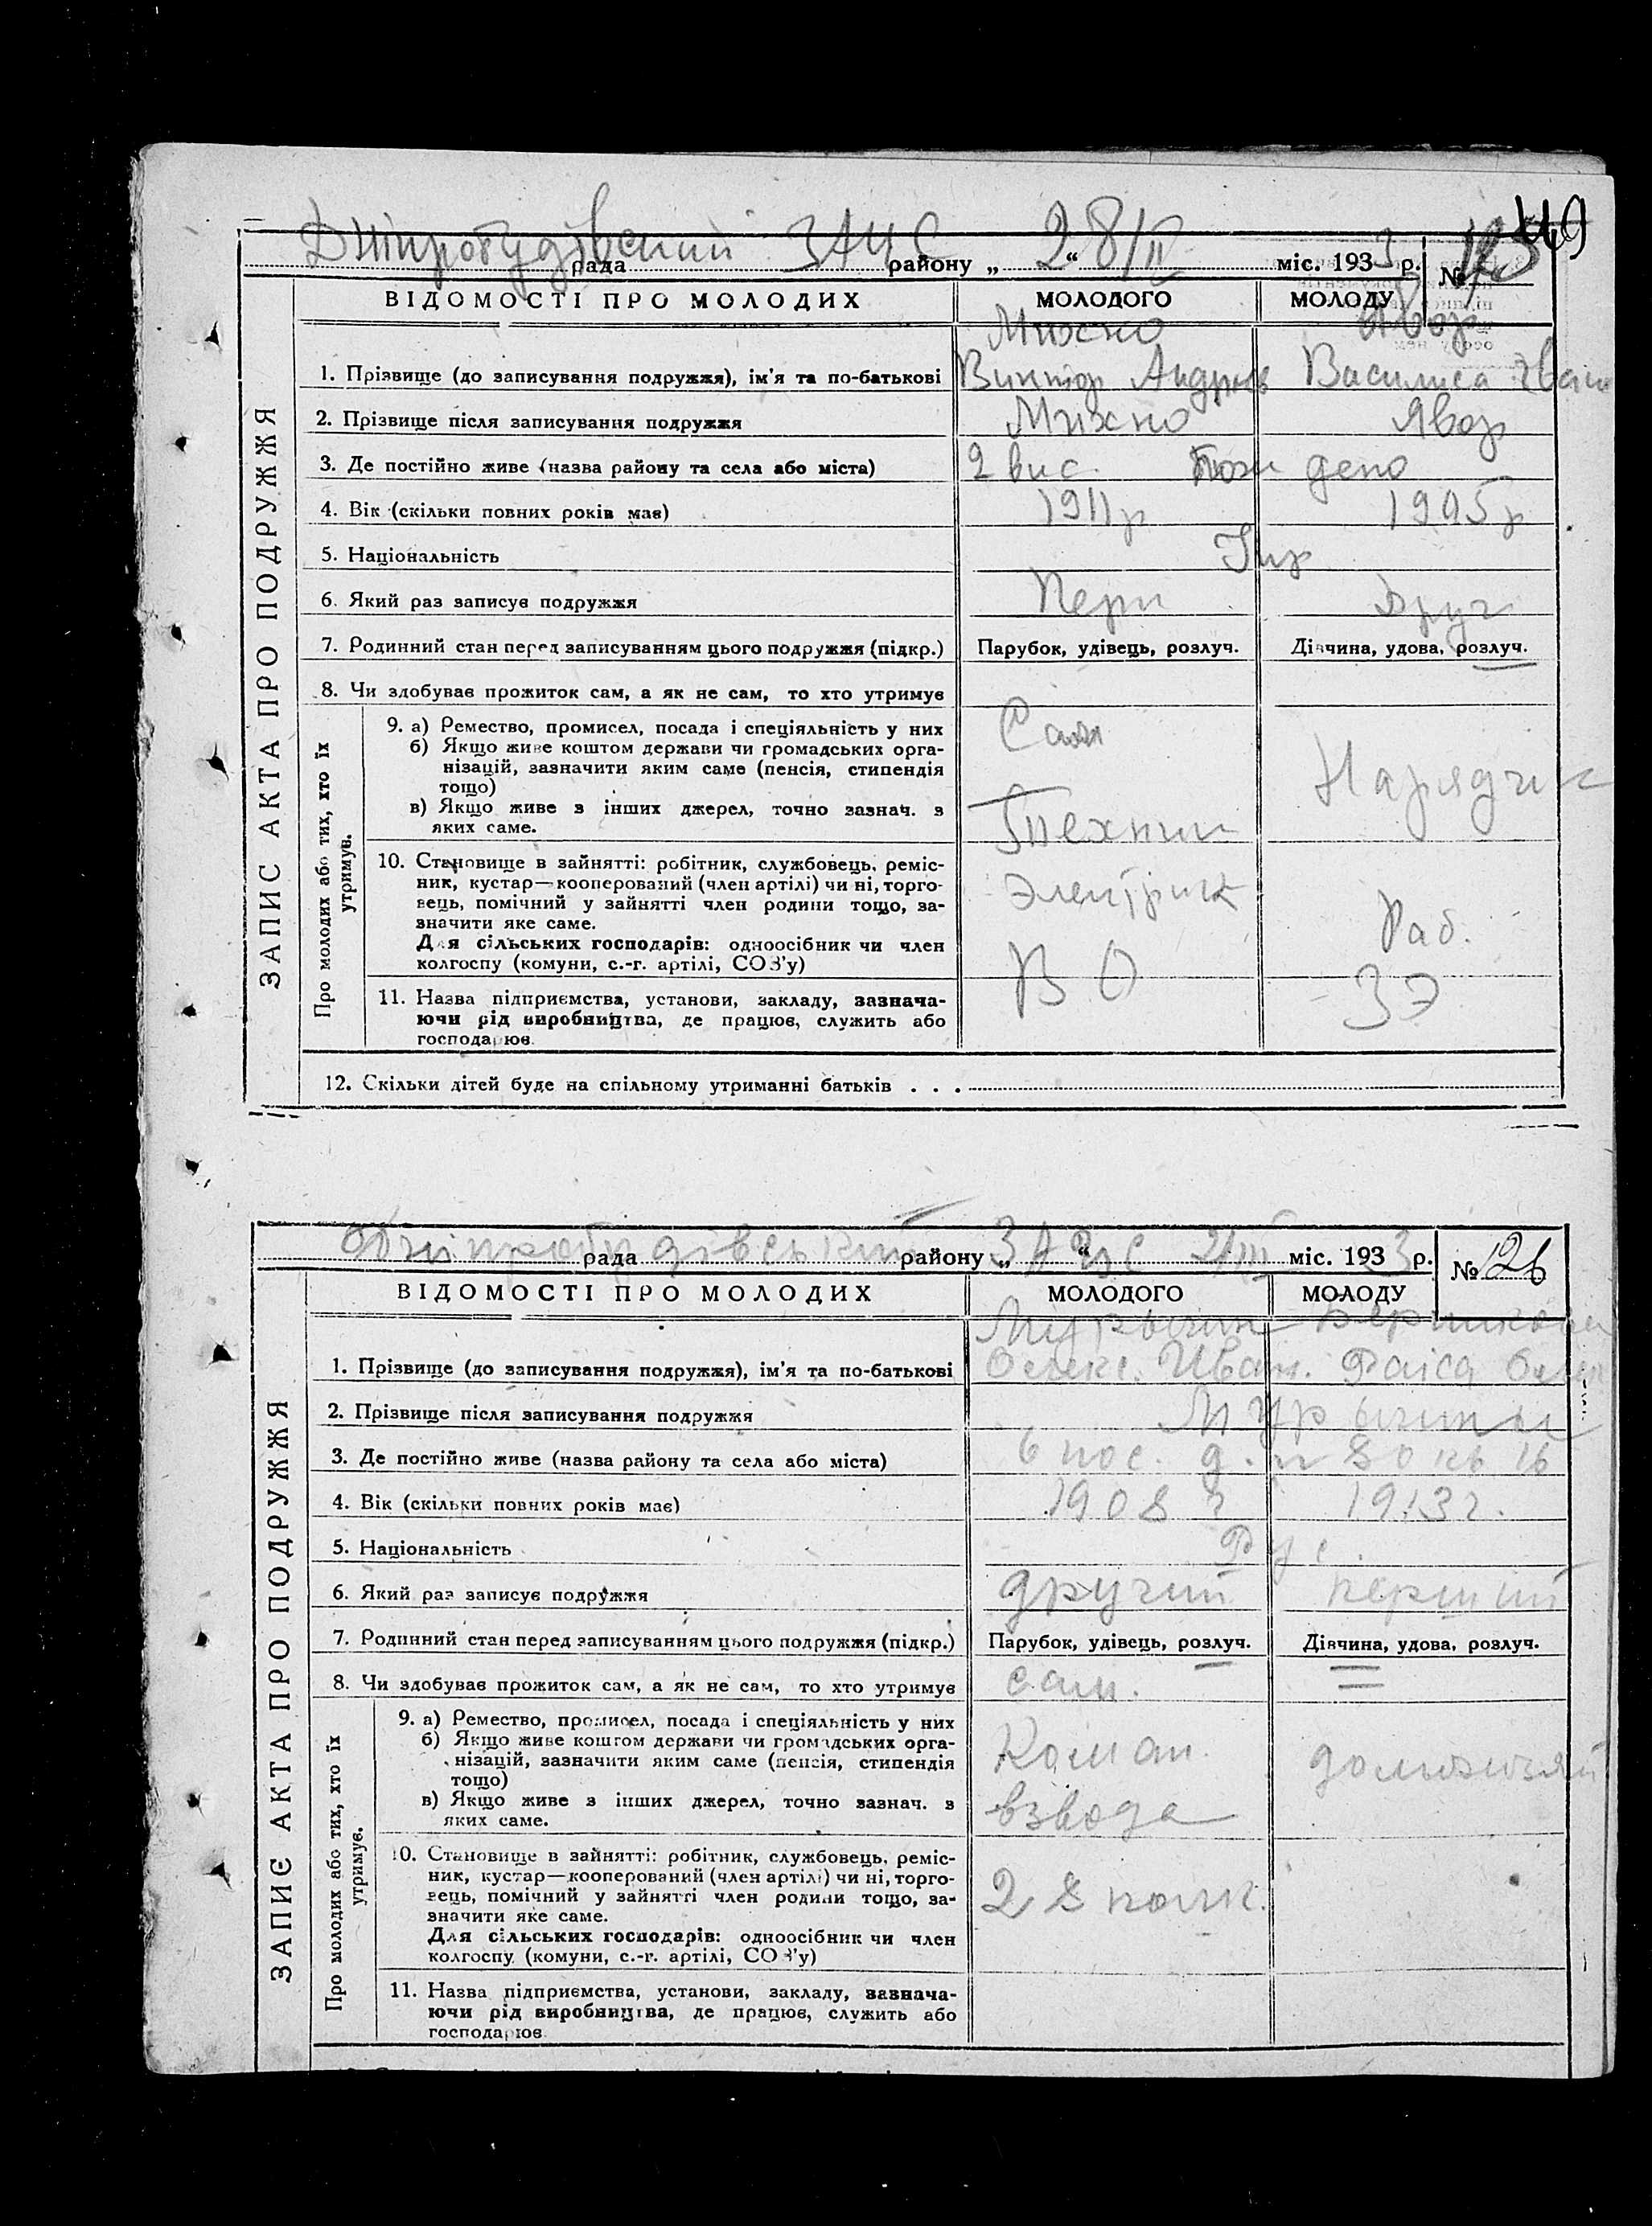 149
Дніпробудівский ЗАЦС 28/II
рада району „ “ міс. 1933 р. № 125
ВІДОМОСТІ ПРО МОЛОДИХ МОЛОДОГО МОЛОДУ
Михно Явор
1. Прізвище (до записування подружжя), ім’я та по-батькові Виктор Андрїєв Василиса Іван
2. Прізвище після записування подружжя Михно Явор
3. Де постійно живе (назва району та села або міста) 2 вис. Пож депо
4. Вік (скільки повних років має) 1911 р 1905 р
5. Національність Укр
6. Який раз записує подружжя Перш Друг
7. Родинний стан перед записуванням цього подружжя (підкр.) Парубок, удівець, розлуч. Дівчина, удова, розлуч.
8. Чи здобував прожиток сам, а як не сам, то хто утримує
ЗАПИС АКТА ПРО ПОДРУЖЖЯ
Про молодих або тих, хто їх утримує.
9. а) Ремество, промисел, посада і спеціяльність у них Сам
б) Якщо живе коштом держави чи громадських орга-
нізацій, зазначити яким саме (пенсія, стипендія Нарядчик
тощо)
в) Якщо живе з інших джерел, точно зазнач. з
яких саме. Техник
10. Становище в зайнятті: робітник, службовець, реміс-
ник, кустар—кооперований (член артілі) чи ні, торго- Электрик
вець, помічний у зайнятті член родини тощо, за-
значити яке саме. Раб.
Для сільських господарів: одноосібник чи член
колгоспу (комуни, с.-г. артілі, СОЗ’у) В О ЗЭ
11. Назва підприємства, установи, закладу, зазнача-
ючи рід виробництва, де працює, служить або
господарює.
12. Скільки дітей буде на спільному утриманні батьків . . .
Дніпробудівський ЗАЦС 2/III
рада району „ “ міс. 1933 р. № 126
ВІДОМОСТІ ПРО МОЛОДИХ МОЛОДОГО МОЛОДУ
Мурычин
1. Прізвище (до записування подружжя), ім’я та по-батькові Олекс. Иван. Раїса Олек
2. Прізвище після записування подружжя Мурычины
3. Де постійно живе (назва району та села або міста) 6 пос. д. № 80 кв 16
4. Вік (скільки повних років має) 1908 г 1913 г.
5. Національність Рус.
6. Який раз записує подружжя другий перший
7. Родинний стан перед записуванням цього подружжя (підкр.) Парубок, удівець, розлуч. Дівчина, удова, розлуч.
8. Чи здобував прожиток сам, а як не сам, то хто утримує сам.
ЗАПИС АКТА ПРО ПОДРУЖЖЯ
Про молодих або тих, хто їх утримує.
9. а) Ремество, промисел, посада і спеціяльність у них
б) Якщо живе коштом держави чи громадських орга-
нізацій, зазначити яким саме (пенсія, стипендія Коман.
тощо)
в) Якщо живе з інших джерел, точно зазнач. з взвода
яких саме.
10. Становище в зайнятті: робітник, службовець, реміс-
ник, кустар—кооперований (член артілі) чи ні, торго-
вець, помічний у зайнятті член родини тощо, за- 28 полк.
значити яке саме.
Для сільських господарів: одноосібник чи член
колгоспу (комуни, с.-г. артілі, СОЗ’у)
11. Назва підприємства, установи, закладу, зазнача-
ючи рід виробництва, де працює, служить або
господарює